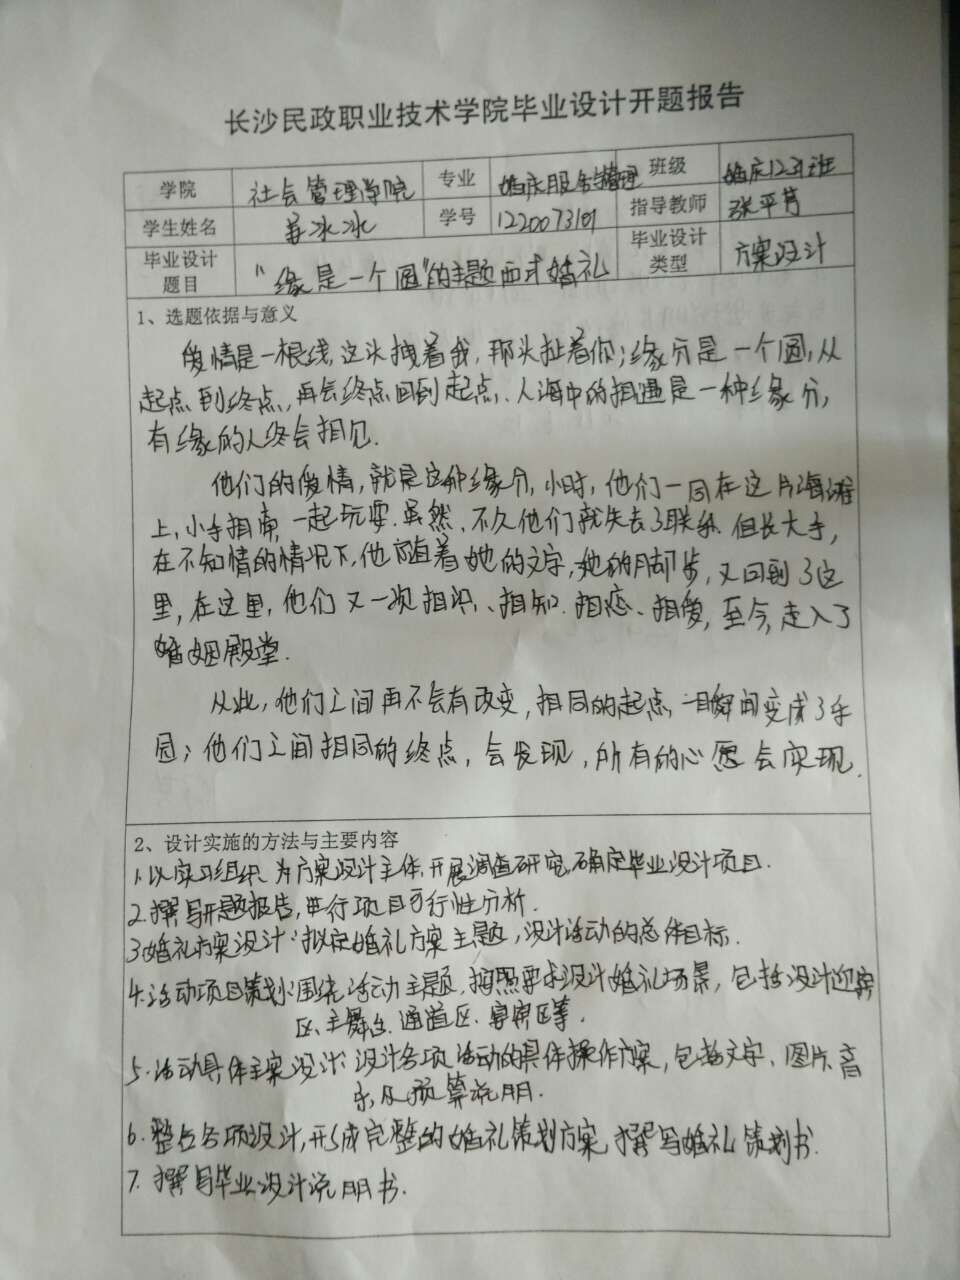 长沙民政职业技术学院毕业设计开题报告
学院 社会管理学院 专业 婚庆服务与管理 班级 婚庆1231班
学生姓名 姜冰冰 学号 1220073101 指导教师 张平芳
毕业设计题目 “缘是一个圆”的主题西式婚礼 毕业设计类型 方案设计
1、选题依据与意义
爱情是一根线,这头拽着我,那头扯着你;缘分是一个圆,从
起点到终点,再会终点回到起点、人海中的相遇是一种缘分,
有缘的人终会相见.
他们的爱情,就是这种缘分,小时,他们一同在这片海滩
上,小手相牵,一起玩耍.虽然、不久他们就失去了联系.但长大手,
在不知情的情况下,他随着她的文字,她的脚步,又回到了这
里,在这里,他们又一次相识、相知.相恋、相爱,至今,走入了
婚姻殿堂.
从此,他们之间再不会有改变,相同的起点,一瞬间变成了半
圆;他们之间相同的终点,会发现,所有的心愿会实现.
2、设计实施的方法与主要内容
1.以实习组织为方案设计主体,开展调查研究,确定毕业设计项目.
2.撰写开题报告,进行项目可行性分析.
3.婚礼方案设计:拟定婚礼方案主题,设计活动的总体目标.
4.活动项目策划:围绕活动主题,按照要求设计婚礼场景,包括设计迎宾
区、主舞台、通道区、宴宾区等.
5.活动具体方案设计:设计各项活动的具体操作方案,包括文字、图片、音
乐,及预算说明.
6.整合各项设计,形成完整的婚礼策划方案,撰写婚礼策划书.
7.撰写毕业设计说明书.